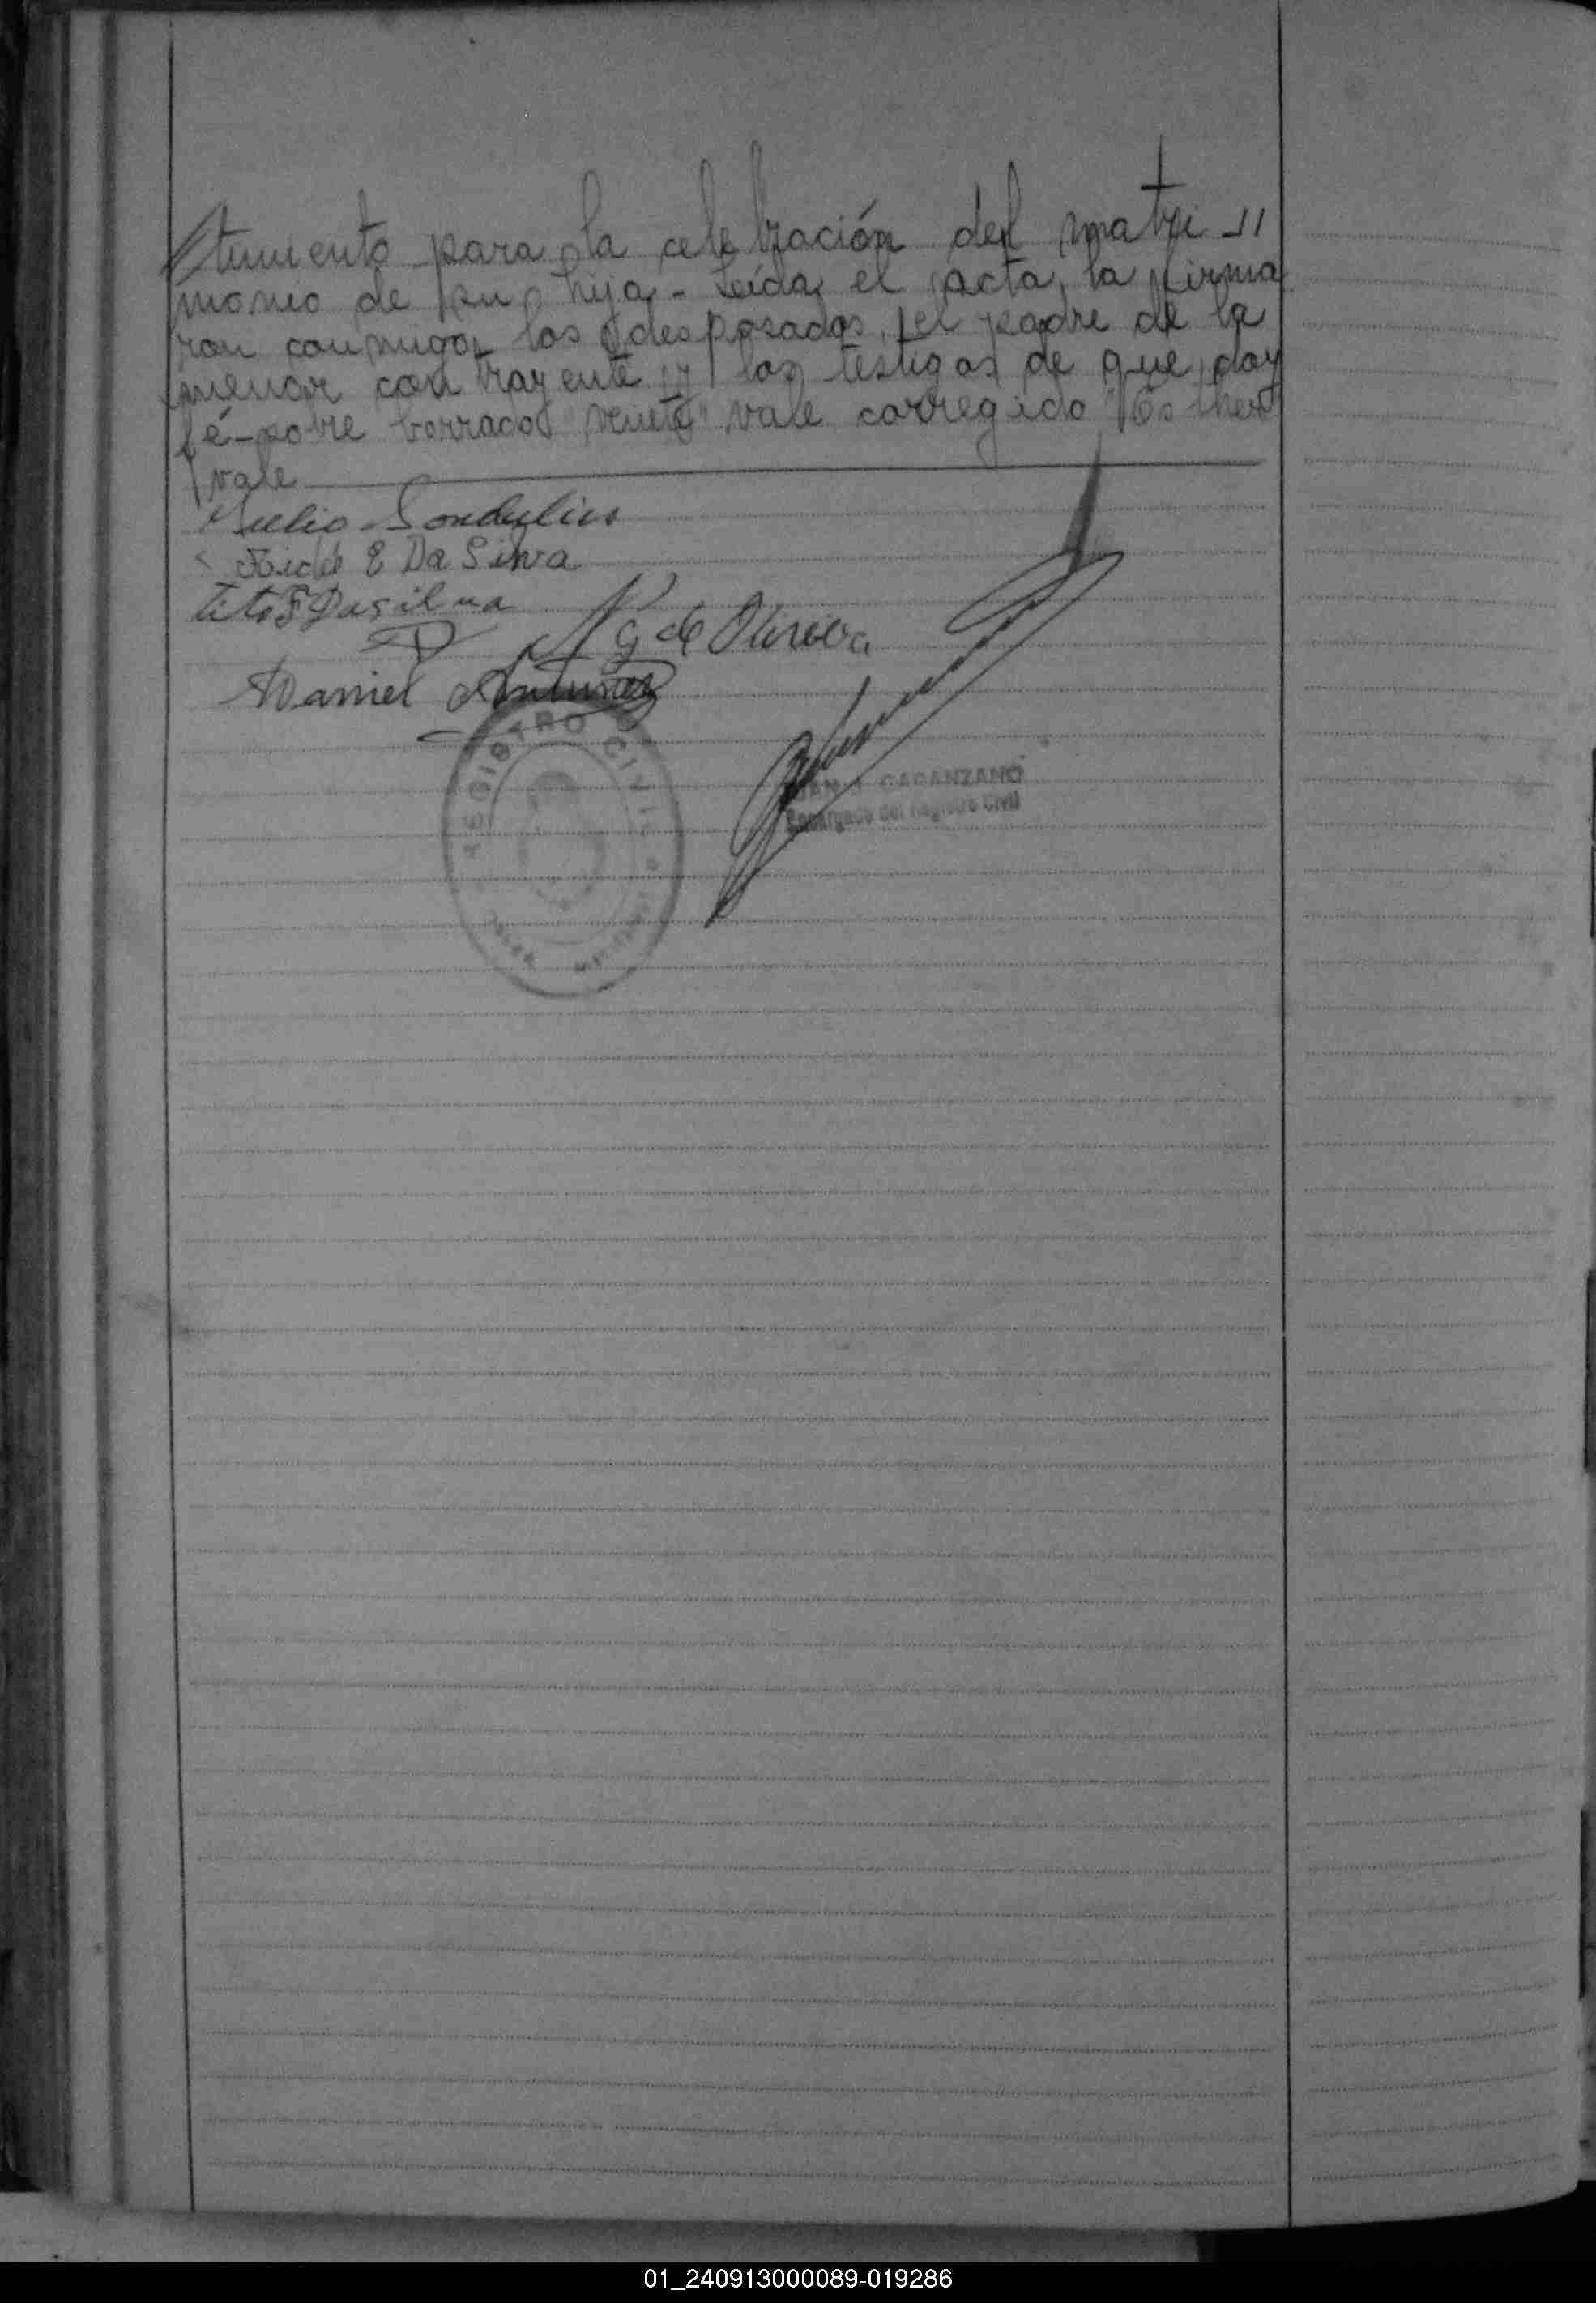 timiento para la celebración del matri-//
monio de su hija - Leída el acta, la firma
ron conmigo, los desposados, el padre de la
menor contrayente y los testigos de que doy
fé - sobre borrado "veinte" vale corregido "Esther"
vale
Julio
E Da Silva
Tito F Dasilva
N G de Oliveira
Daniel Antunez
REGISTRO CIVIL
JUAN J. CAGANZANO
Encargado del Registro Civil
01_240913000089-019286